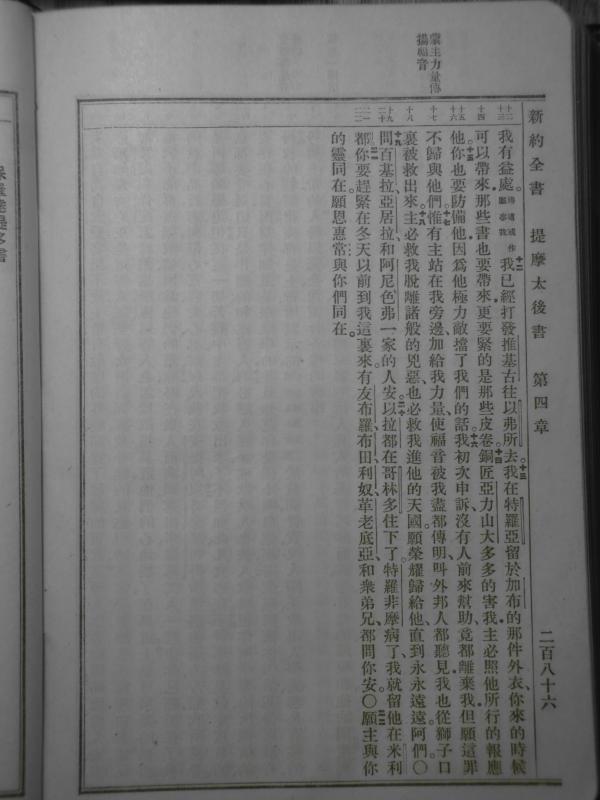 新約全書 提摩太後書 第四章 二百八十六
蒙主力量傳
揚福音
我有益處。我已經打發推基古往以弗所去我在特羅亞留於加布的那件外衣你來的時候
可以帶來那些書也要帶來更要緊的是那些皮卷銅匠亞力山大多多的害我主必照他所行的報應
他你也要防備他因爲他極力敵擋了我們的話我初次申訴沒有人前來幫助竟都離棄我但願這罪
不歸與他們惟有主站在我旁邊加給我力量使福音被我盡都傳明叫外邦人都聽見我也從獅子口
裏被救出來主必救我脫離諸般的兇惡也必救我進他的天國願榮耀歸給他直到永永遠遠阿們〇
問百基拉亞居拉和阿尼色弗一家的人安以拉都在哥林多住下了特羅非摩病了我就留他在米利
都你要趕緊在冬天以前到我這裏來有友布羅布田利奴革老底亞和衆弟兄都問你安〇願主與你
的靈同在願恩惠常與你們同在。